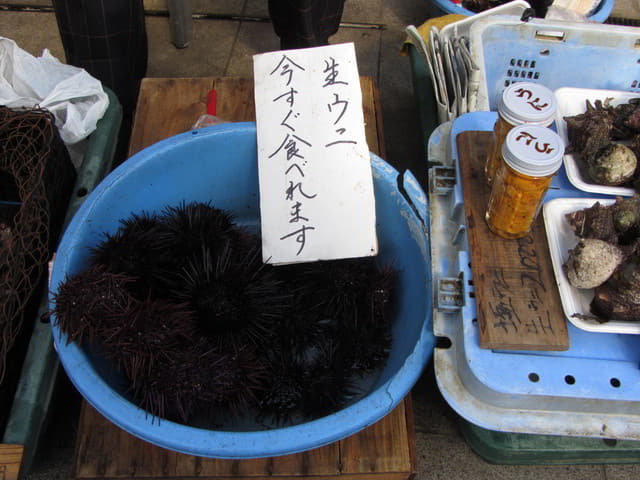 生ウニ
今すぐ食べれます
うに